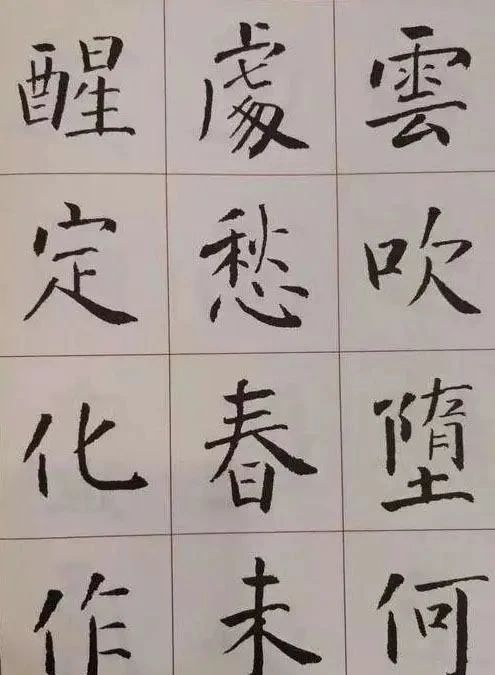 雲吹墮何
處愁春未
醒定化作